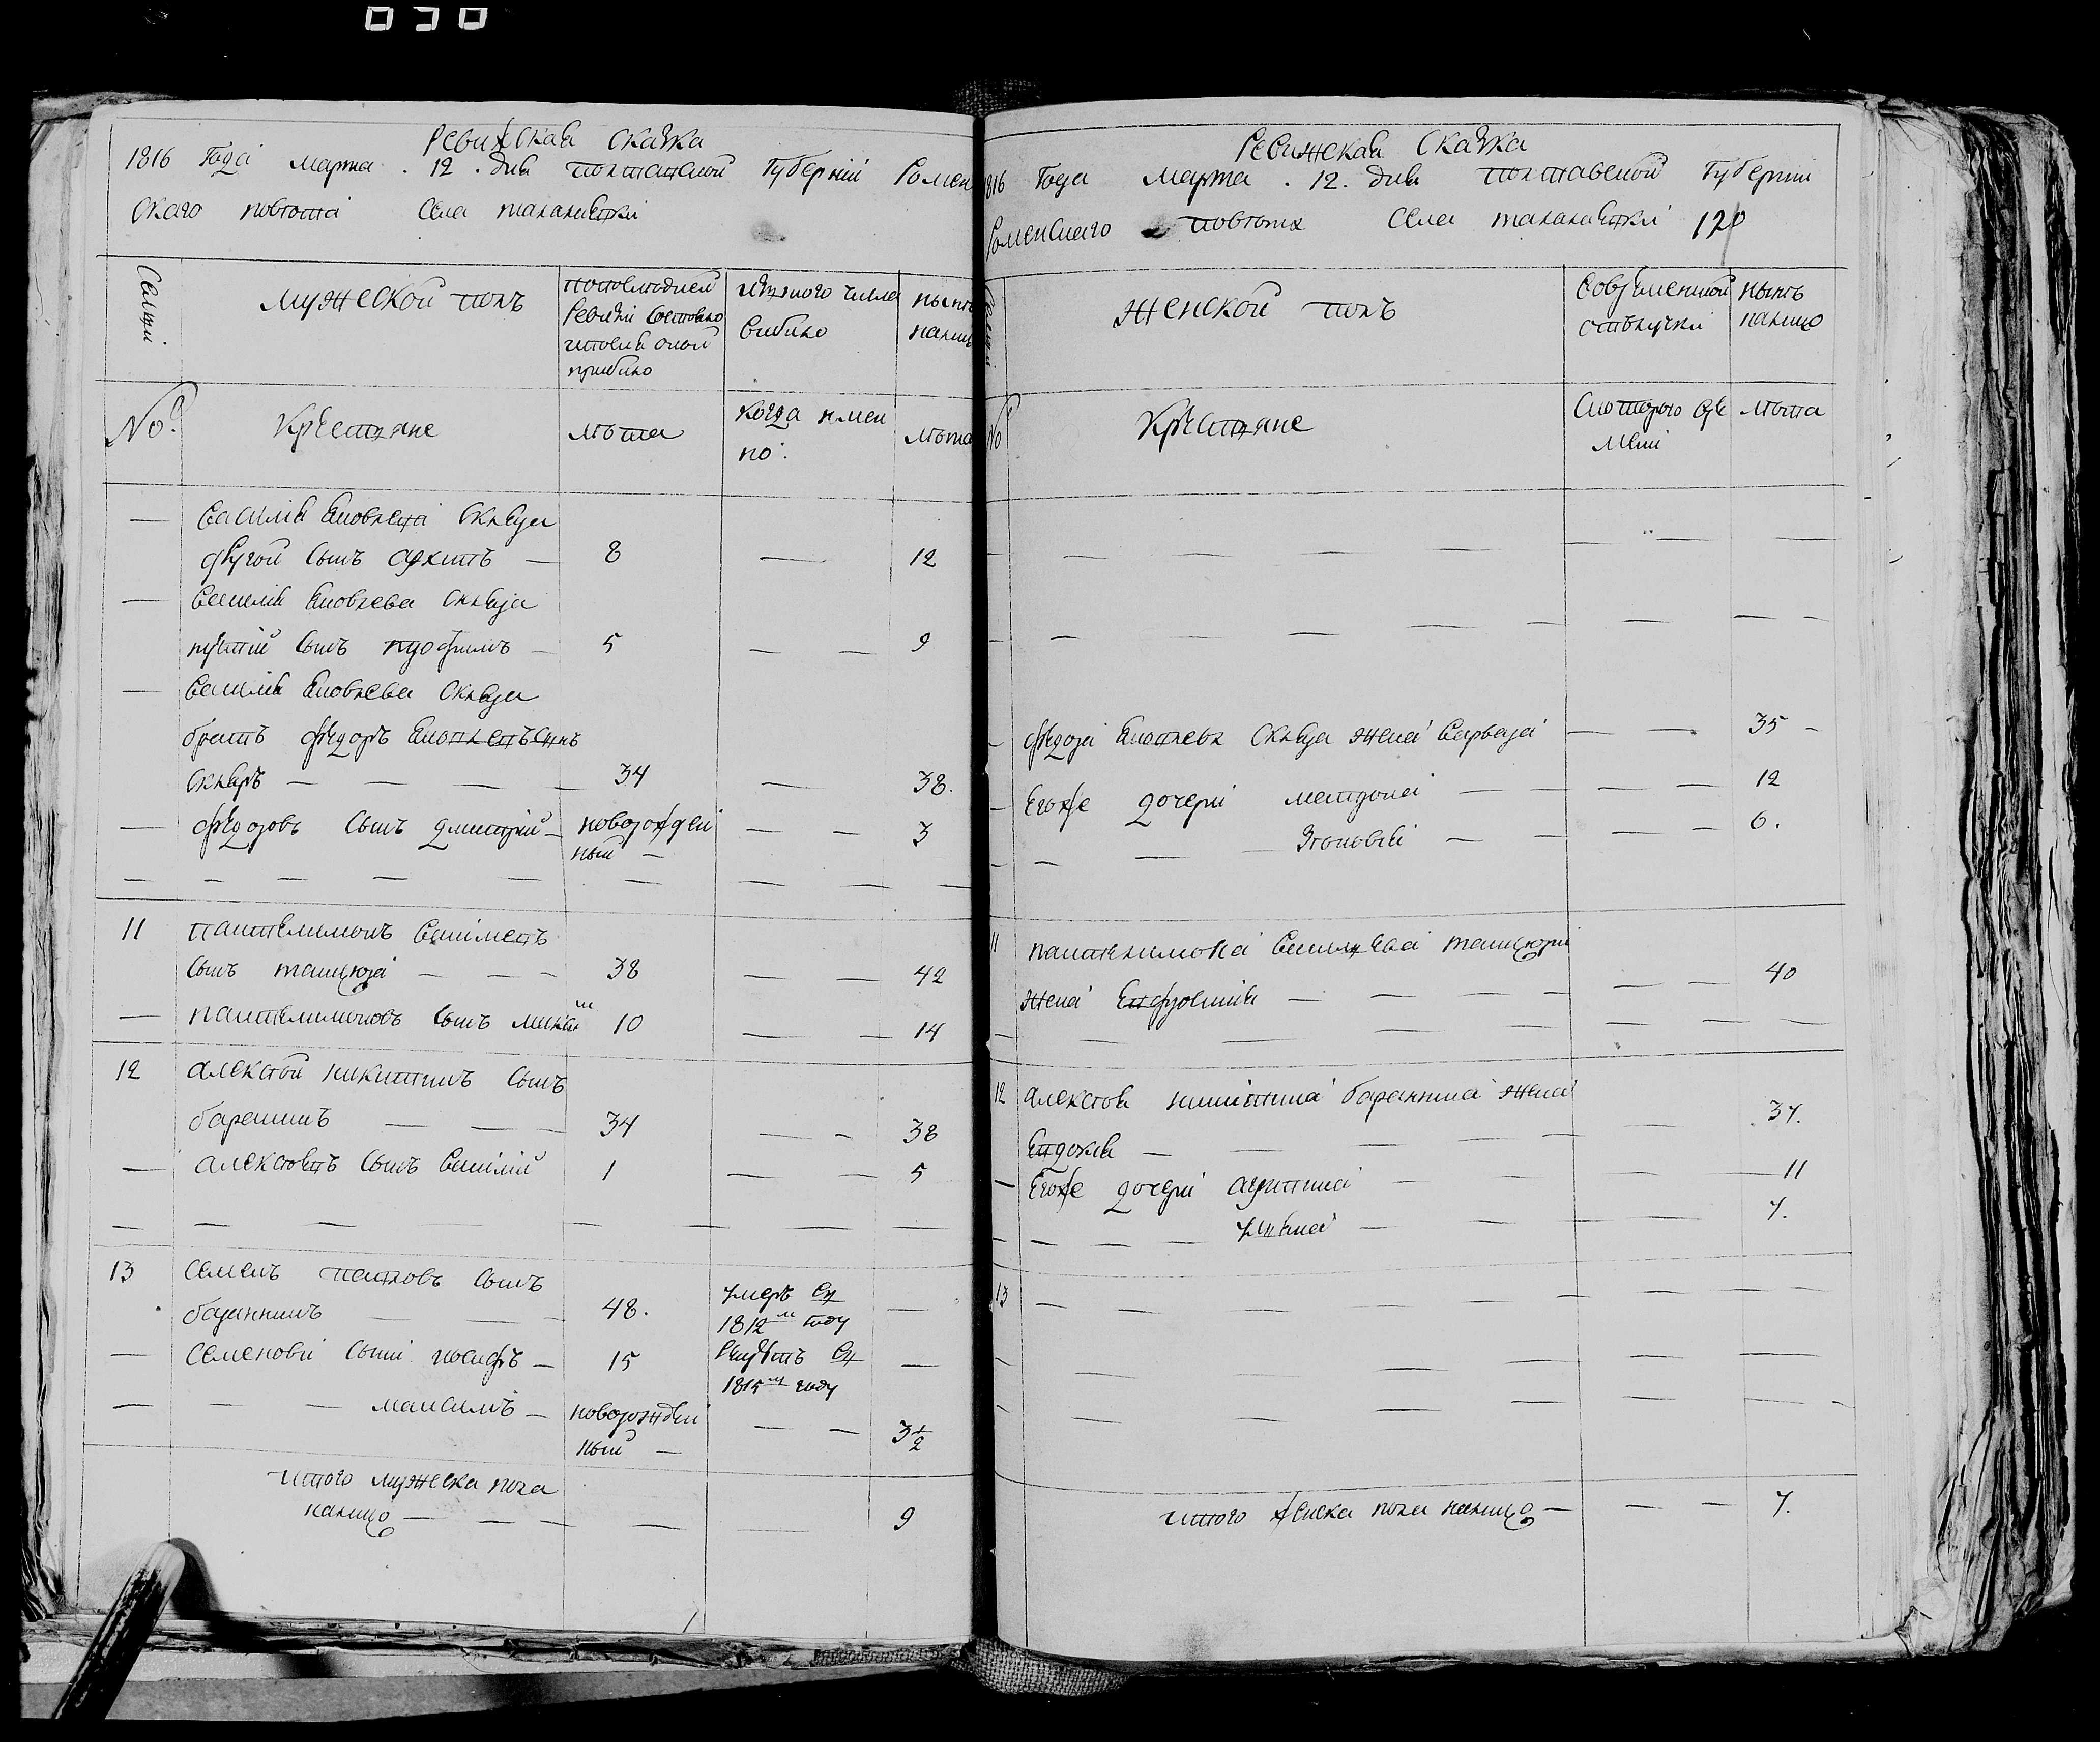 030
Ревижская скаска
1816 года марта . 12 . дня полтавской губернии Ромен
скаго повета села талалаевки
Семьи
мужеской полъ
по последней ревизии состояло и после оной прибыло
изтого числа выбило
ныне налицо
№
крестяне
лета
когда имен но.
лета
— Василия Яковлева Скляра
другой сынъ архипъ — 8 — 12
— Василия Яковлева Скляра
третий сынъ трофимъ — 5 — — 9
— Василия Яковлева Скляра
братъ федоръ Яковлевъ сынъ
Скляръ — — — — 34 — 38.
— федоровъ сынъ дмитрий — новорожден — — 3
ный —
11 пантелимонъ Василиевъ
сынъ танцюра — — — 38 — — 42
— пантелимоновъ сынъ михаи 10 — — 14
12 алексей никитинъ сынъ
баранникъ — — — 34 — — 38
— алексеевъ сынъ Василий 1 — — 5
13 Семенъ павловъ сынъ
баранникъ — — 48. умеръ въ —
1812 м году
— Семенови сыни иосифъ — 15 рекрутъ въ —
1815 м году
— — — максимъ — новорожден — — 3½
ный —
итого мужеска пола
налицо — — — — 9
Ревижская Скаска
1816 года марта . 12 . дня полтавской губернии
Роменскаго повета села талалаевки 120
Семьи
женской полъ
во временной отлучки
ныне налицо
№
крестяне
с которого вре мени
лета
— федора Яковлева Скляра жена Варвара — — 35 —
— Егоже дочери матрона — — — — 12
— — — Зеновия — — — — 6.
11 пантелимона Василиева танцюри
жена Евфросиния — — — — — — 40
12 алексея никитина баранника жена
Евдокия — — — — — 37.
— Егоже дочери агрипина — — — — 11
— — — — улияна — — — — 7.
13 — — — — — — — — —
итого женска пола налицо — — — 7.